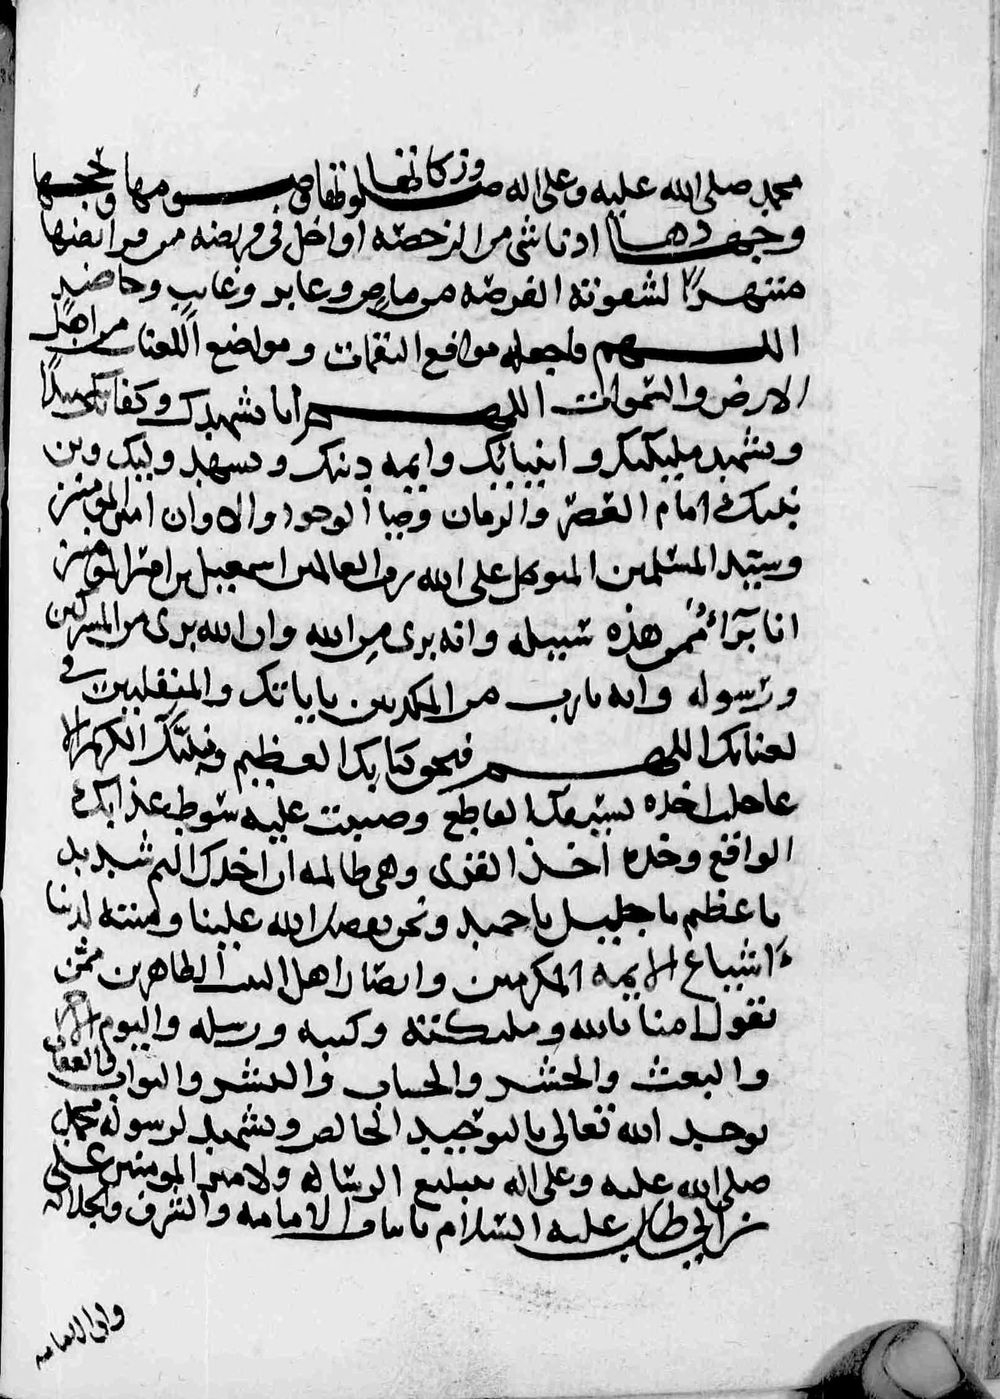 محمد صلى الله عليه وعلى اله وزكاتها صلوتها وصومها وحجها
وجهادها اوناشى من الرخصه اواخل فى فريضه من فرايضها
منتهزا لشعوذته الفرصه من ماض وعابر وغايب وحاضر
اللهم فاجعله مواقع النقمات ومواضع اللعنات من اهل
الارض والسموات اللهم انا نشهدك وكفا بك شهيدا
ونشهد مليكتك وانبيائك وايمه دينك ونشهد وليك وبن
نبيك امام العصر والزمان وضيا الوجود والاوان امير المومنين
وسيد المسلمين المتوكل على الله رب العالمين اسمعيل بن امير المومنين
انا برآء ممن هذه سبيله وانه برى من الله وان الله برى من المشركين
ورسوله وانه يارب من المكذبين باياتك والمنقلبين فى
لعناتك اللهم فبحق كتابك العظيم ونبيك الكريم الا
عاجلت اخذه بسيفك القاطع وصببت عليه سوط عذابك
الواقع وخذه اخذ القرى وهى ظالمه ان اخذك اليم شديد
يا عظيم يا جليل يا حميد ونحن بفضل الله علينا ومنته لدينا
اشياع الايمه المكرمين وانصار اهل البيت الطاهرين ممن
نقول امنا بالله ومليكته وكتبه ورسله واليوم الاخر
والبعث والحشر والحساب والنشر والثواب والعقاب
نوحد الله تعالى بالتوحيد الخالص ونشهد لرسوله محمد
صلى الله عليه وعلى اله بتبليغ الرساله ولامير المومنين على
بن ابي طالب عليه السلام بالامامه والشرف والجلاله